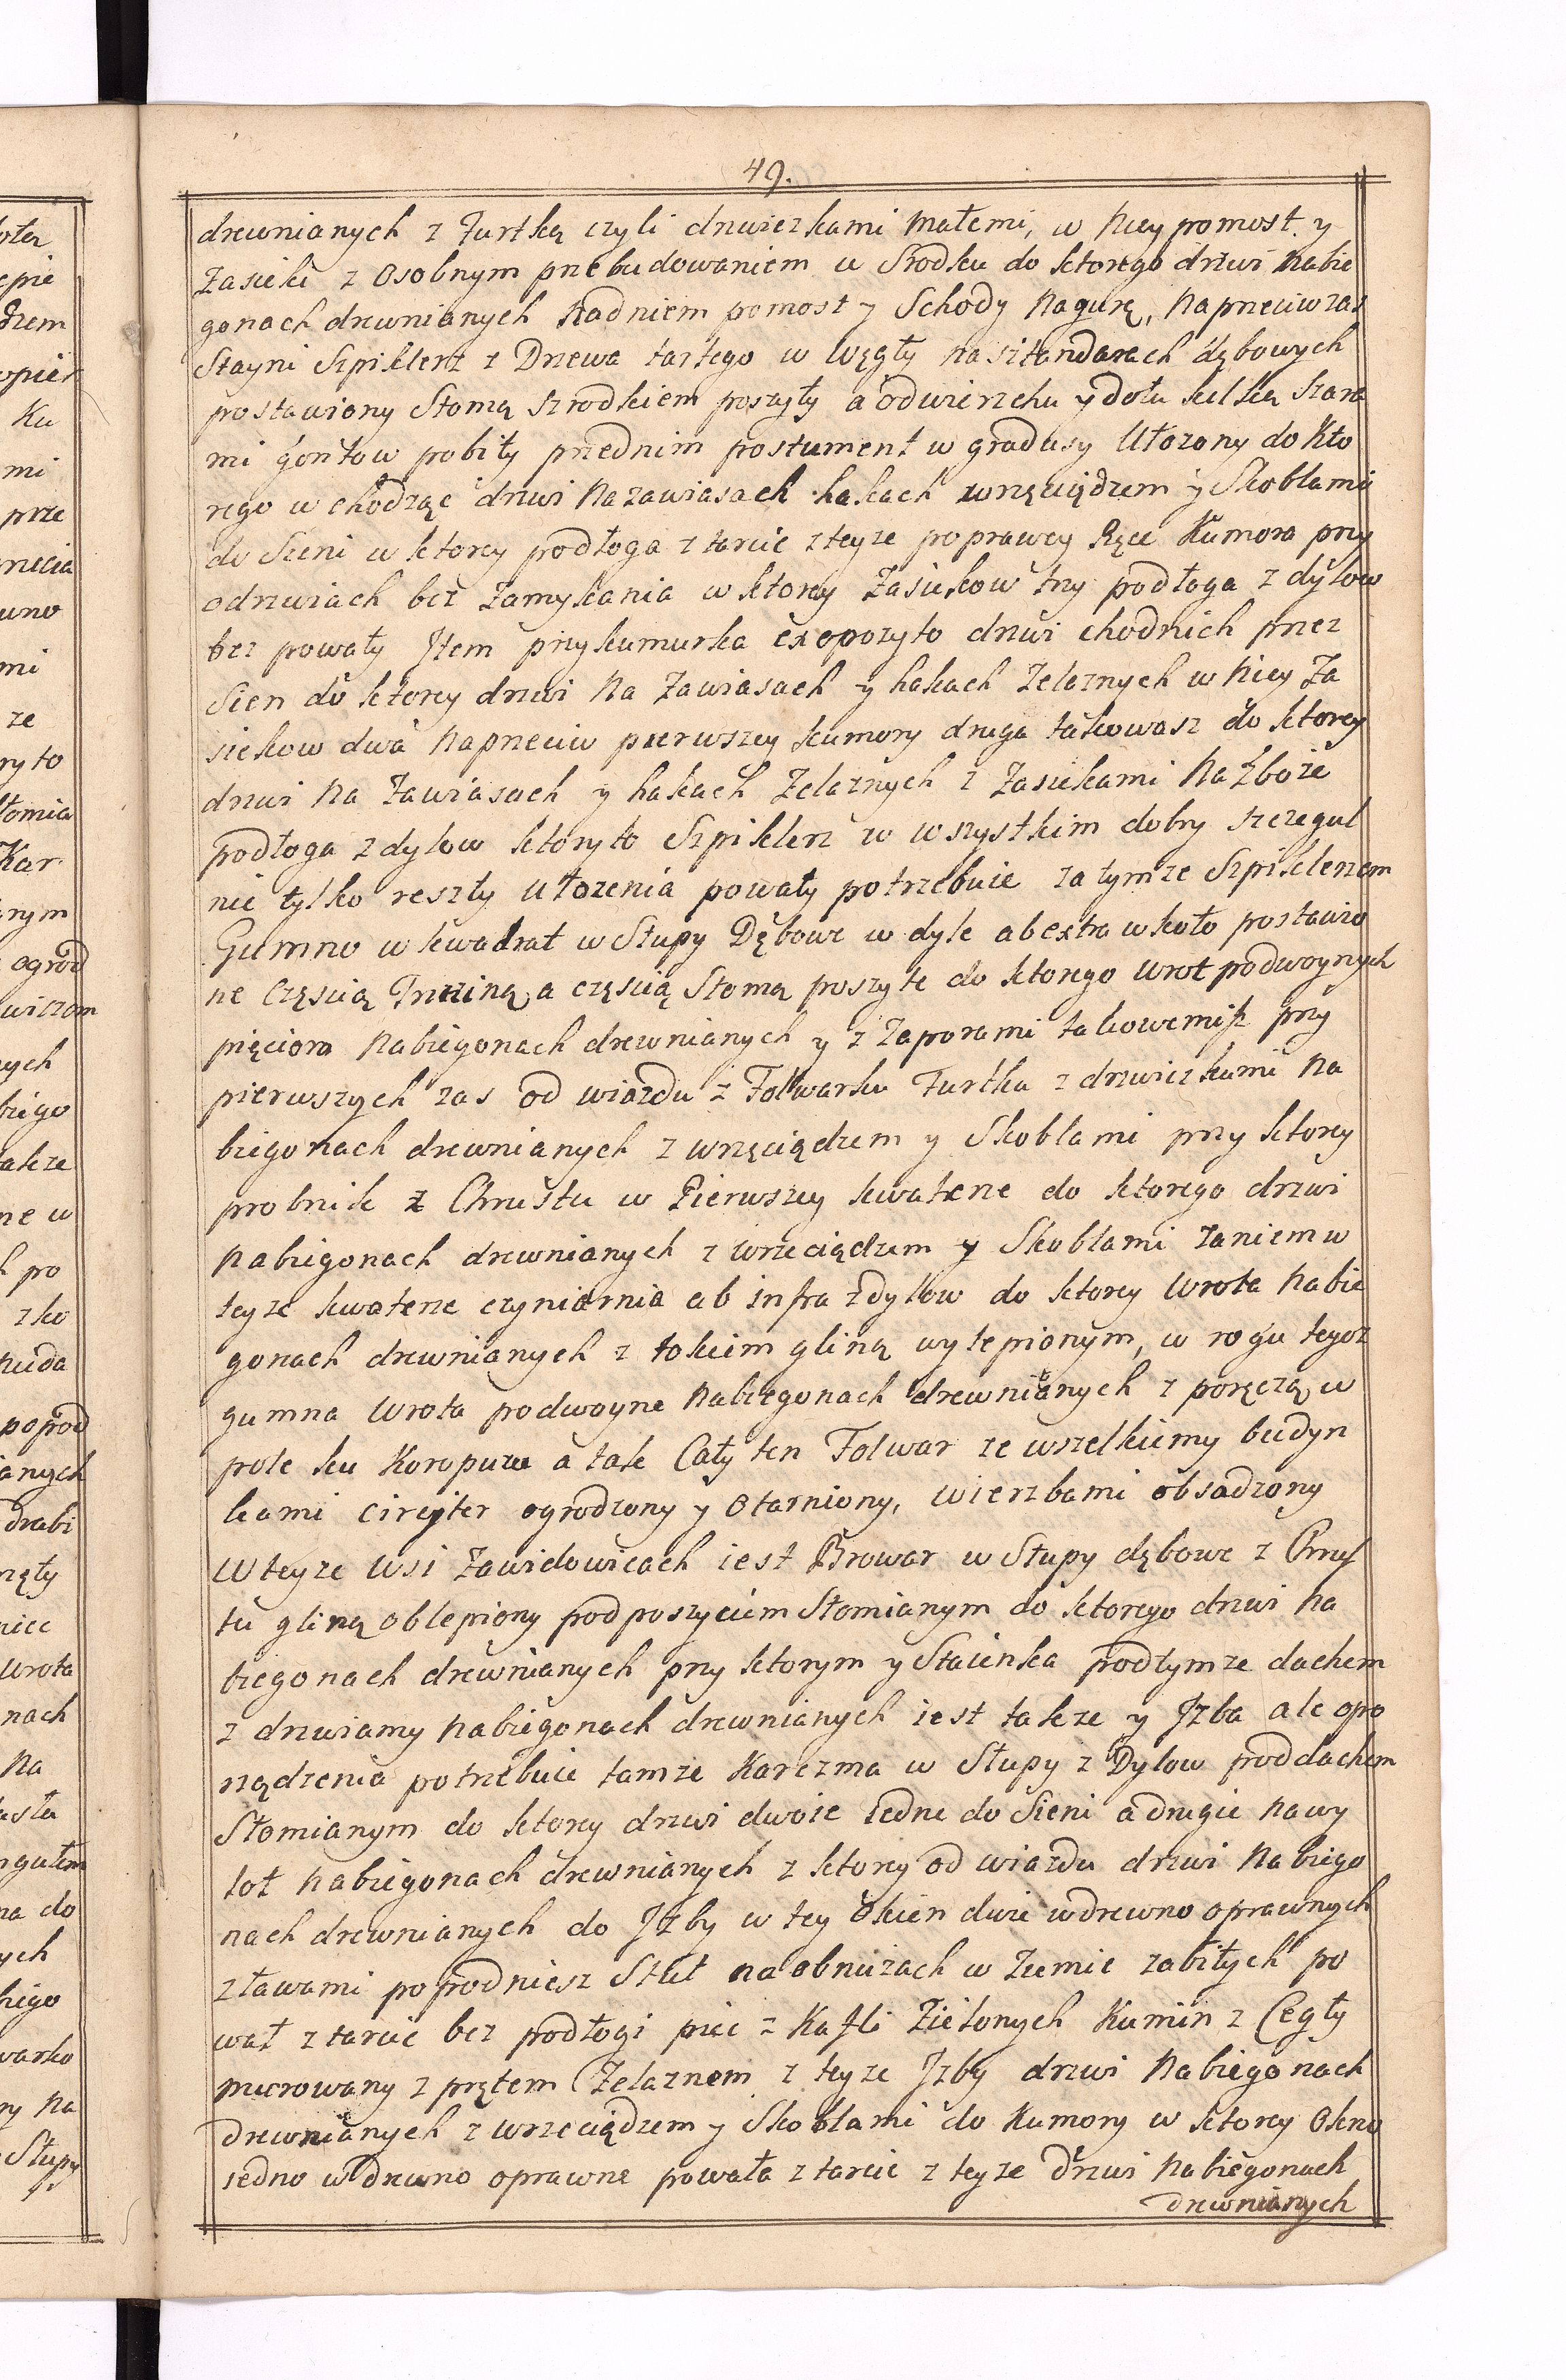 49.
drewnianych z Furtką czyli drzwiczkami małemi, w Niey pomost y
Zasieki z osobnym przebudowaniem w Srodku do ktorego drzwi Nabie
gonach drewnianych Nadniem pomost y Schody Nagurę, Naprzeciw zas
Stayni Szpiklerz z Drzewa tartego w Węgły na sztandarach dębowych
postawiony Słomą szrodkiem poszyty a odwierzchu y dołu kilką szara
mi gontow pobity przednim postument w gradusy Ułozony do Kto
rego wchodząc drzwi Nazawiasach hakach wrzęciądzem y Skoblami
do Sieni w ktorey podłoga z tarcic z teyze poprawey Ręce Kumora przy
odrzwiach bez zamykania w ktorey Zasiekow trzy podłoga z dylow
bez powały Jtem przykumurka exopozyto drzwi chodnich przez
Sien do ktorey drzwi Na Zawiasach y hakach Zelaznych w Niey Za
siekow dwa Naprzeciw pierwszey kumory druga takowasz do ktorey
drzwi Na Zawiasach y hakach Zelaznych z Zasiekami Na Zboże
podłoga z dylow ktoryto Szpiklerz w wszystkim dobry szczegul
nie tylko reszty ułozenia powały potrzebuie za tymze Szpiklerzem
Gumno w kwadrat w Słupy Dębowe w dyle abextra wkoło postawio
ne Częscią Trzciną a częscią Słomą poszyte do ktorego wrot podwoynych
pięcioro Nabiegonach drewnianych y z Zaporami takowemisz przy
pierwszych zas od wiazdu z Folwarku Furtka z drzwiczkami Na
biegonach drewnianych z wrzęciądzem y Skoblami przy ktorey
probnik z Chrustu w Pierwszey kwaterze do ktorego drzwi
Nabiegonach drewnianych z wrzeciądzem y Skoblami zaniem w
teyze kwaterze czyniarnia ab infra z dylow do ktorey Wrota Nabie
gonach drewnianych z tokiem gliną wylepionym, w rogu tegoz
gumna Wrota podwoyne Nabiegonach drewnianych z poręczą w
pole ku Koropuzu a tak Cały ten Folwar ze wszelkiemy budyn
kami circiter ogrodzony y otarniony, wierzbami obsadzony
W teyze Wsi Zawidowicach iest Browar w Słupy dębowe z Chrus
tu gliną oblepiony pod poszyciem Słomianym do ktorego drzwi Na
biegonach drewnianych przy ktorym y Staienka podtymze dachem
z drzwiamy Nabiegonach drewnianych iest takze y Jzba ale opo
rządzenia potrzebuie tamze Karczma w Słupy z Dylow pod dachem
Słomianym do ktorey drzwi dwoie iedne do Sieni a drugie nawy
lot Nabiegonach drewnianych z ktorey od wiazdu drzwi Nabiego
nach drewnianych do Jzby w tey okien dwie wdrewno oprawnych
z ławami popodniesz Stuł na obnizach w Ziemie zabitych po
wał z tarcic bez podłogi piec z Kafli Zielonych Kumin z Cegły
murowany z prętem Zelaznem z teyze Jzby drzwi Nabiegonach
drewnianych z wrzeciądzem y Skoblami do Kumory w ktorey Okno
iedno w drewno oprawne powała z tarcic z teyze drzwi Nabiegonach
drewnianych